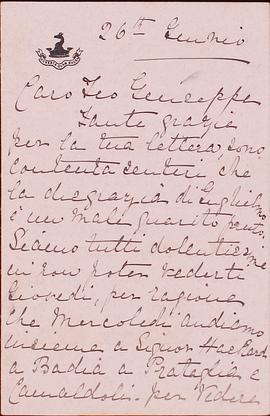 26th Giunio
Caro Zeo Geuseppe
Tante grazie
per la tua lettera, sono
contenta sentire che
la disgrazia di Guglielmo
è un male guarito
Siamo tutti dolentiss
mi non poter vederti
Giovedi, per ragione
che Mercoledi andiamo
insieme a Signor
a Badia a Prataglia e
Camaldoli. per vedere